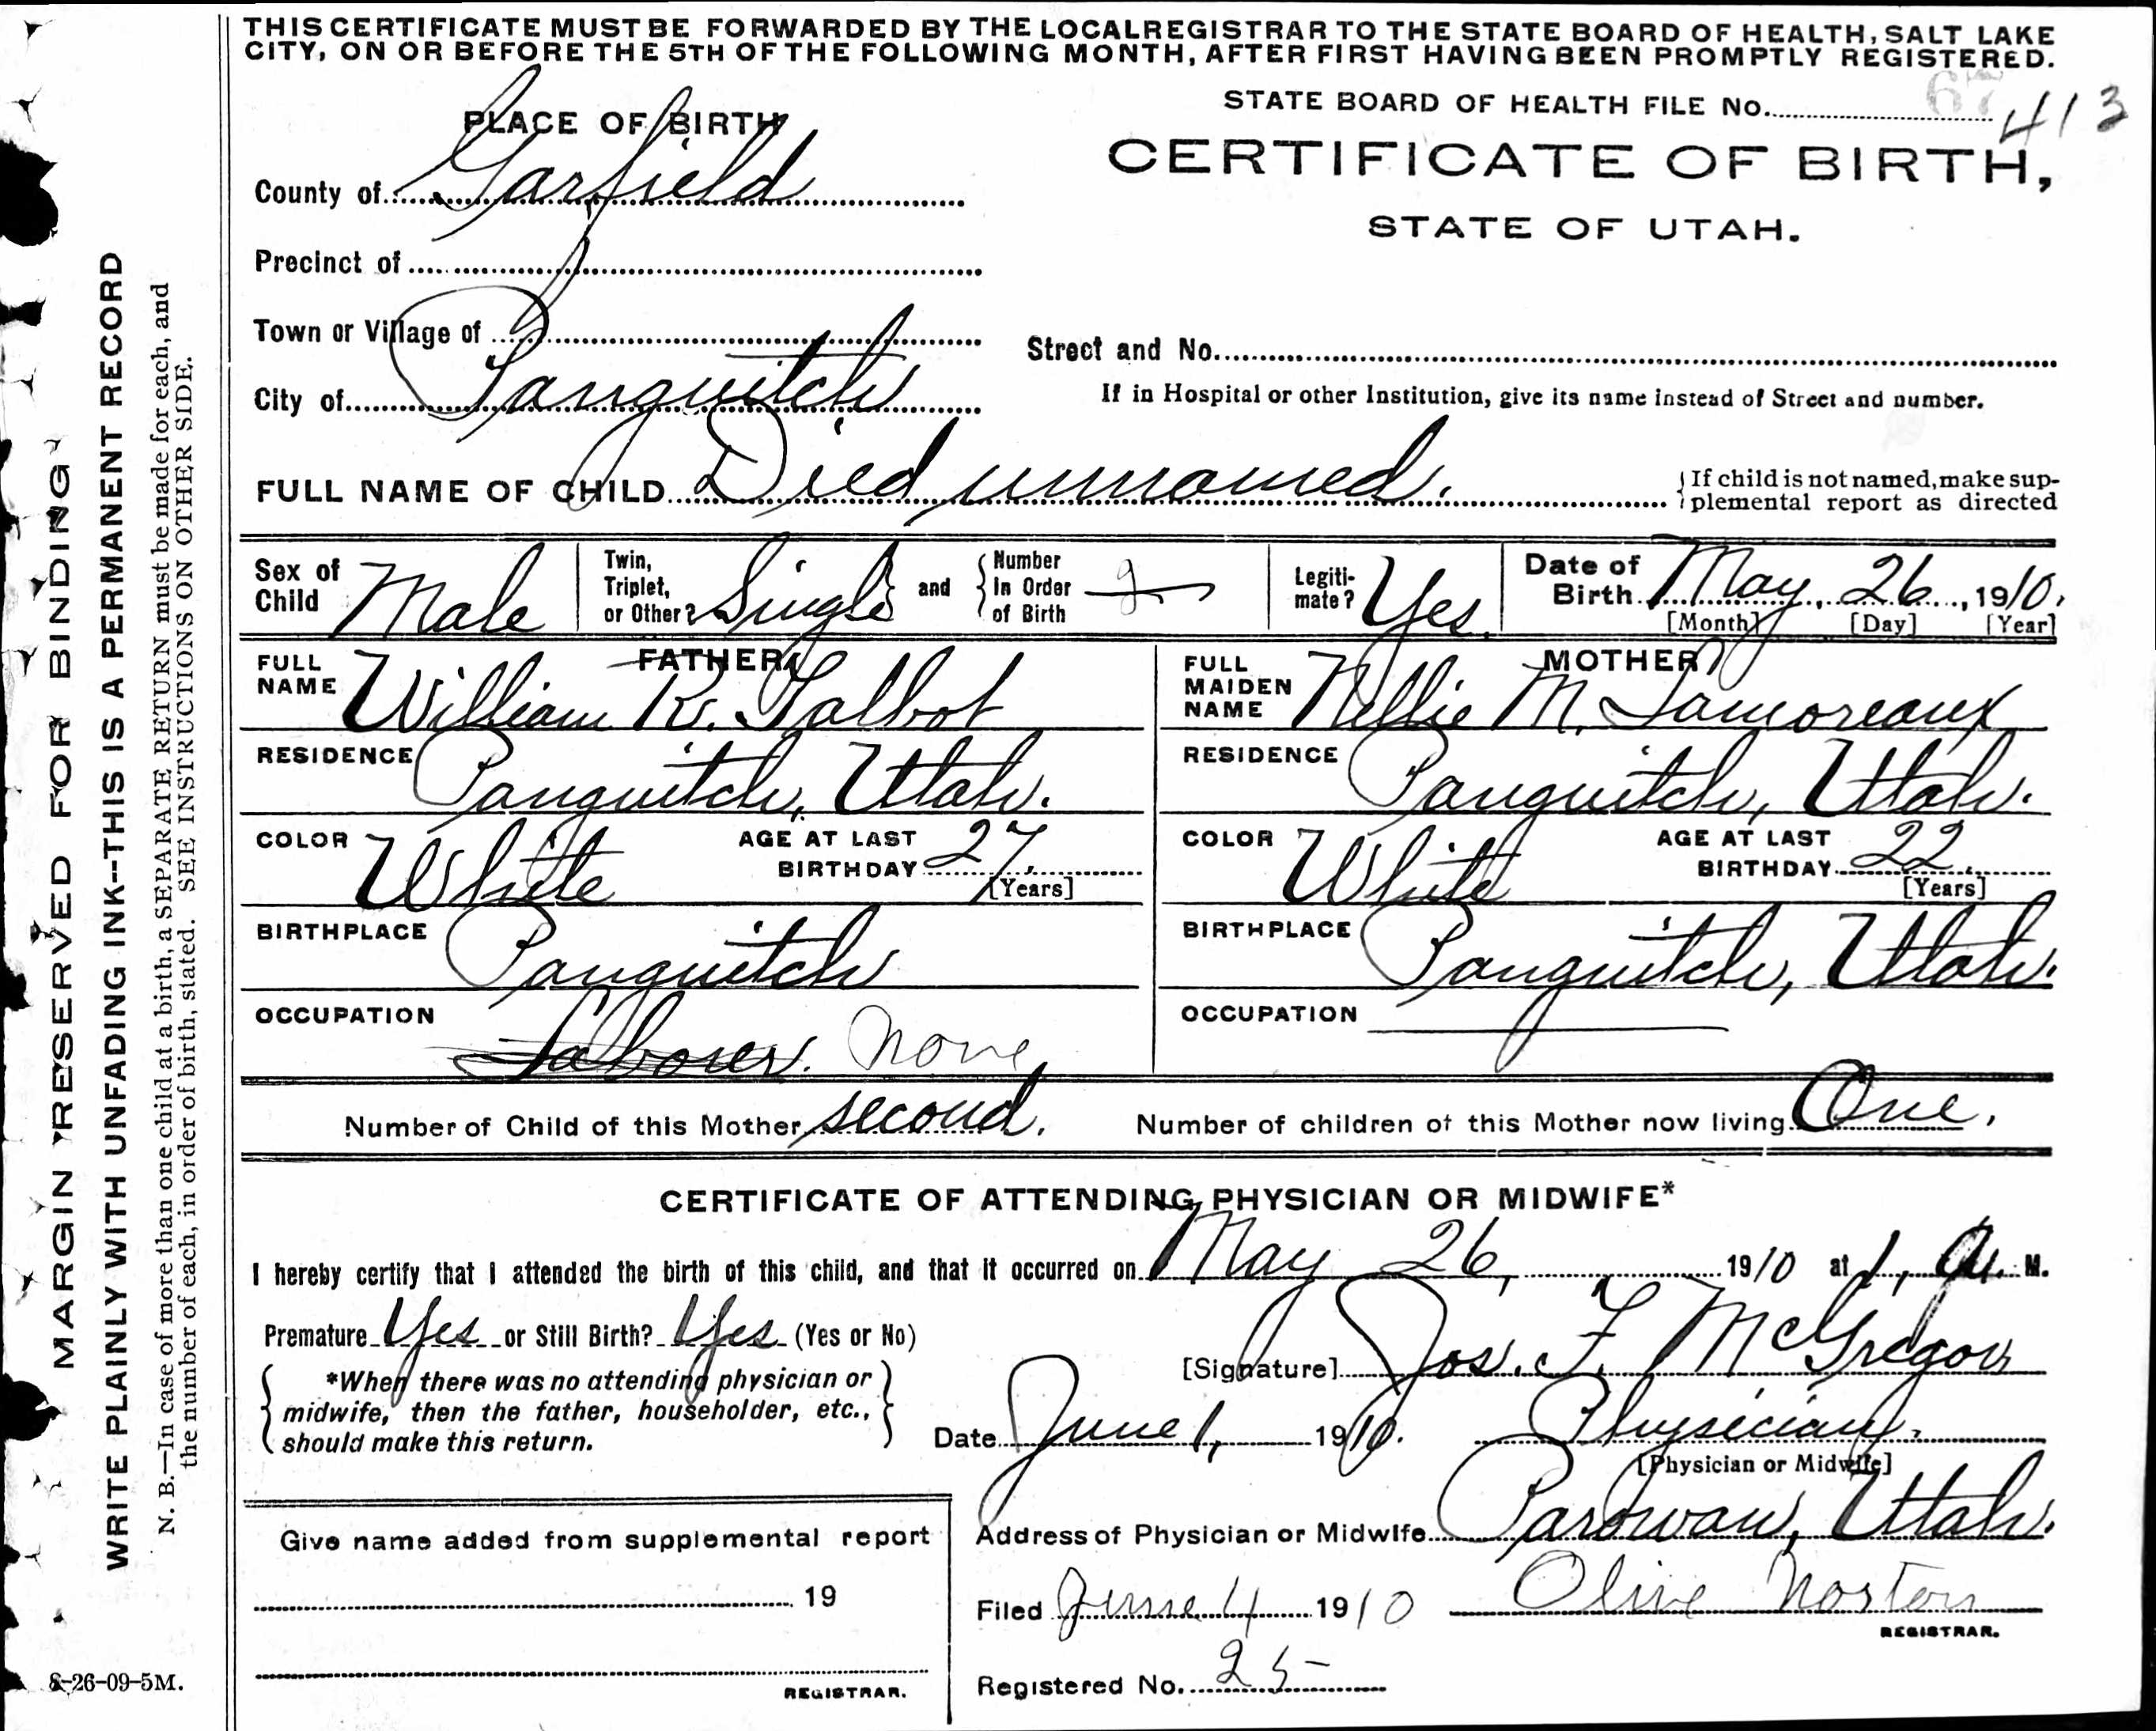 THIS CERTIFICATE MUST BE FORWARDED BY THE LOCAL REGISTRAR TO THE STATE BOARD OF HEALTH, SALT LAKE
CITY, ON OR BEFORE THE 5TH OF THE FOLLOWING MONTH, AFTER FIRST HAVING BEEN PROMPTLY REGISTERED.
STATE BOARD OF HEALTH FILE No. 67 413
PLACE OF BIRTH
CERTIFICATE OF BIRTH,
STATE OF UTAH.
County of Garfield
Precinct of
Town or Village of
Street and No.
City of Panguitch
If in Hospital or other Institution, give its name instead of Street and number.
FULL NAME OF CHILD Died unnamed. {If child is not named, make sup-
plemental report as directed
Sex of Child Male
Twin, Triplet, or Other? Single and {Number In Order of Birth 2
Legiti-mate? Yes.
Date of Birth May, 26, 1910.
[Month] [Day] [Year]
FATHER
FULL NAME William R. Talbot
RESIDENCE Panguitch, Utah.
COLOR White AGE AT LAST BIRTHDAY 27. [Years]
BIRTHPLACE Panguitch
OCCUPATION
Laborer. None
MOTHER
FULL MAIDEN NAME Nellie M. Lamoreaux
RESIDENCE Panguitch, Utah.
COLOR White AGE AT LAST BIRTHDAY 22. [Years]
BIRTHPLACE Panguitch, Utah.
OCCUPATION
Number of Child of this Mother second. Number of children of this Mother now living One.
CERTIFICATE OF ATTENDING PHYSICIAN OR MIDWIFE*
I hereby certify that I attended the birth of this child, and that it occurred on May 26, 1910 at 1, A. M.
Premature Yes or Still Birth? Yes (Yes or No)
[Signature] Jos. F. McGregor
*When there was no attending physician or
midwife, then the father, householder, etc.,
should make this return.
Date June 1, 1910. Physician.
[Physician or Midwife]
Address of Physician or Midwife Parowan, Utah.
Give name added from supplemental report
19
REGISTRAR.
Filed June 4 1910 Olive Norton
REGISTRAR.
Registered No. 25
MARGIN RESERVED FOR BINDING
WRITE PLAINLY WITH UNFADING INK--THIS IS A PERMANENT RECORD
N. B.—In case of more than one child at a birth, a SEPARATE RETURN must be made for each, and
the number of each, in order of birth, stated. SEE INSTRUCTIONS ON OTHER SIDE.
8-26-09-5M.